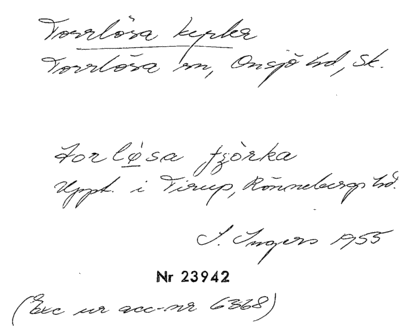 Torrlösa kyrka
Torrlösa sn, Onsjö hd, Sk.
torlösa tjörka
Uppt. i Tirup, Rönnebergs hd.
I. Ingers 1955
Nr 23942
(Exc ur acc-nr 6368)